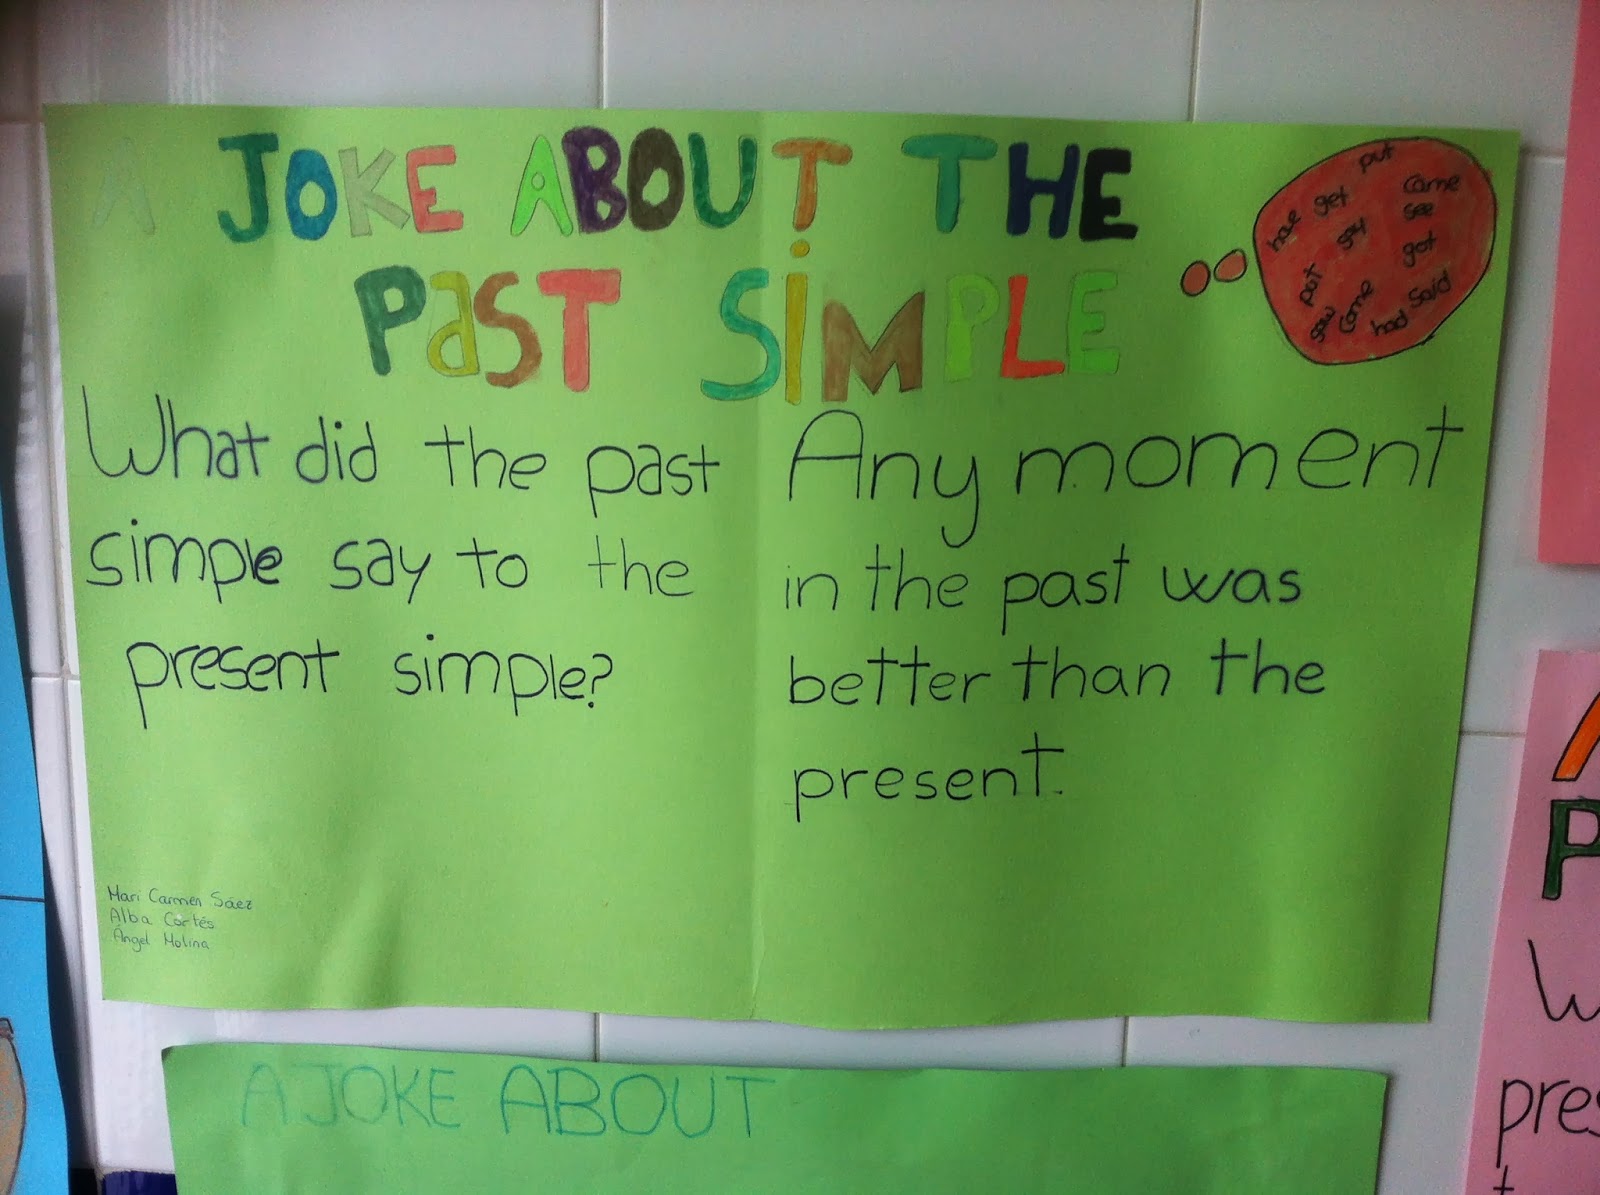 A JOKE ABOUT THE
PAST SIMPLE
put
have get came
say see
put got
saw come had said
What did the past
simple say to the
present simple?
Any moment
in the past was
better than the
present.
Mari Carmen Sáez
Alba Cortés
Ángel Molina
A JOKE ABOUT
P
W
pres
t